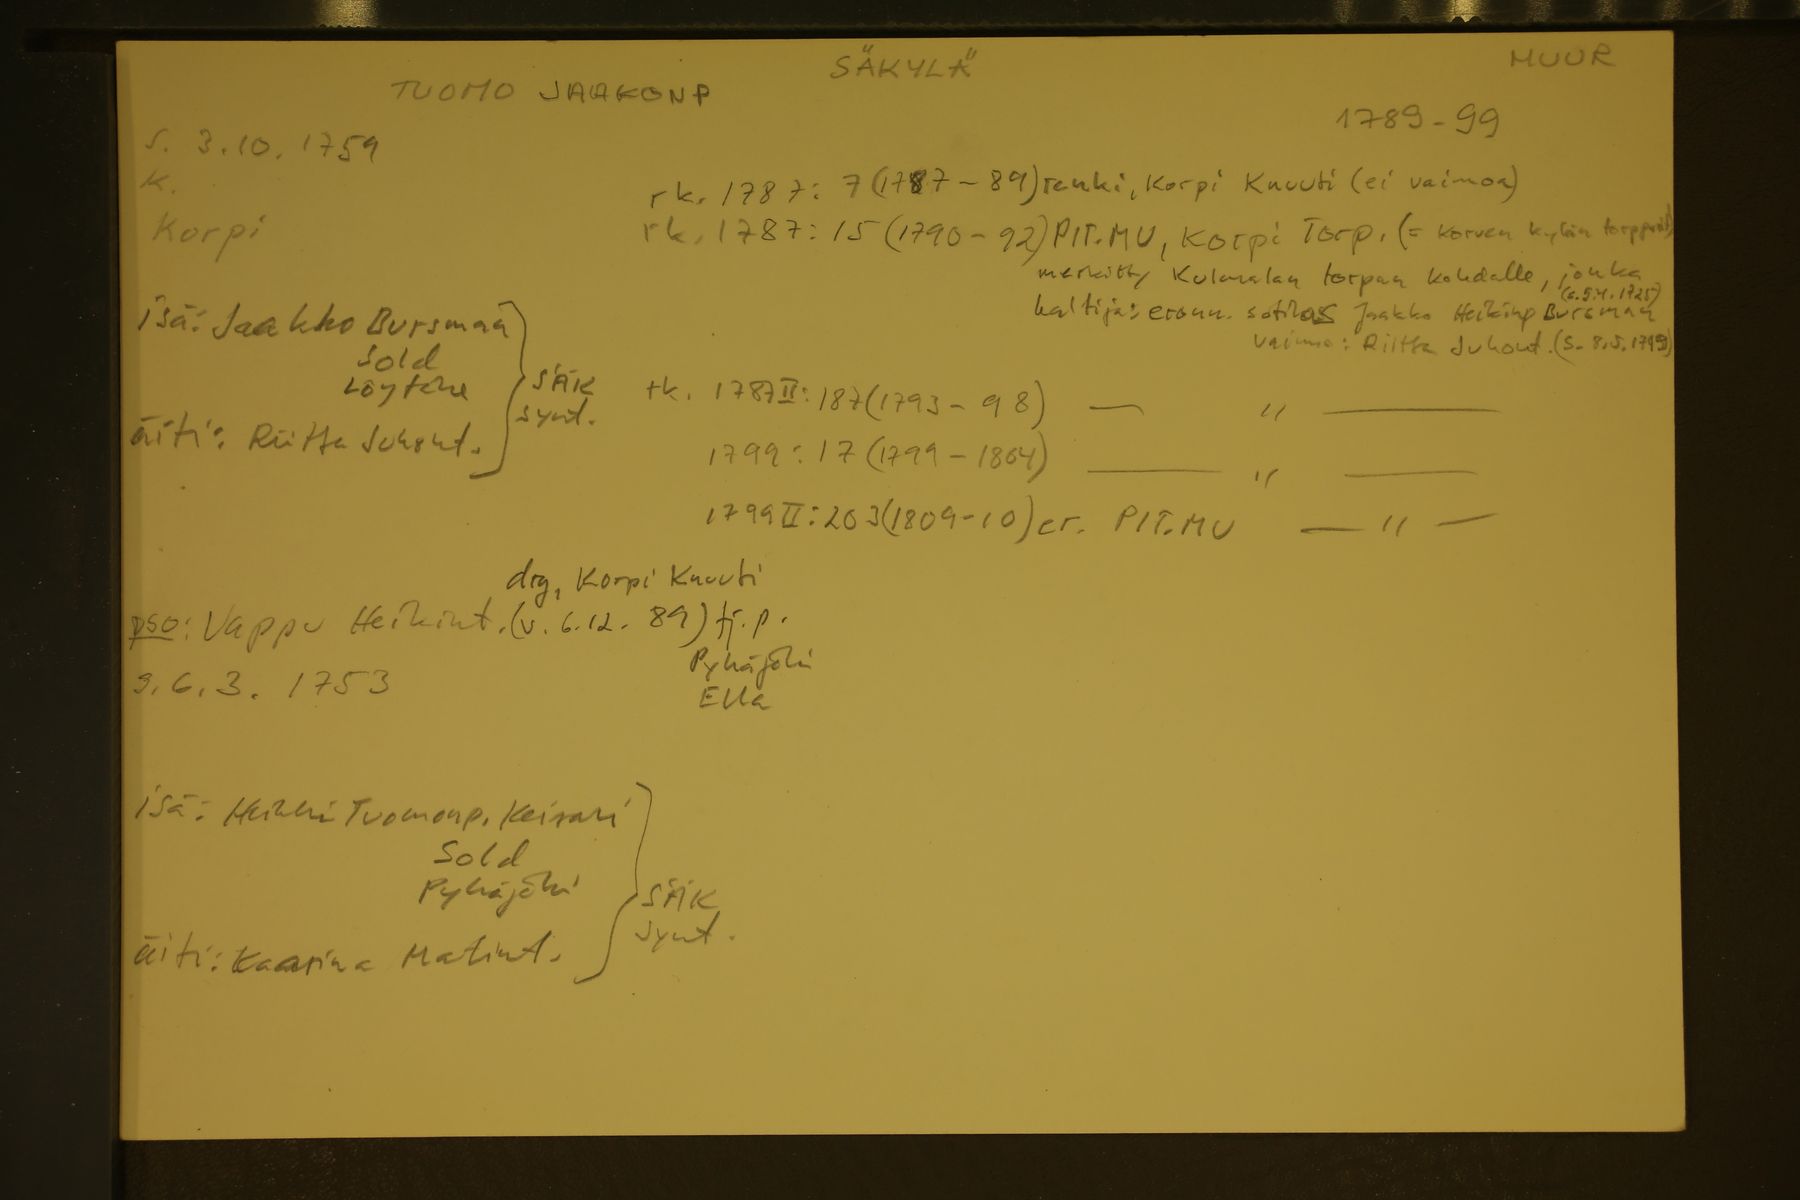 SÄKYLÄ
MUUR
TUOMO JAAKONP
1789-99
s. 3.10.1759
k.
Korpi
rk. 1787: 7 (1787-89) renki, Korpi Knuuti (ei vaimoa)
rk. 1787: 15 (1790-92) PIT.MU, Korpi Torp. (= Korven kylän torpparit)
merkitty Kulmalan torpan kohdalle, jonka
haltija: eronn. sotilas Jaakko Heikinp Bursman
vaimo: Riitta Juhont.
isä: Jaakko Bursman
Sold
Löytäne
äiti: Riitta Juhont.
SÄK
synt.
rk. 1787 II: 187 (1793-98) — " —
1799: 17 (1799-1804) — " —
1799 II: 203 (1809-10) er. PIT.MU — " —
drg, Korpi Knuuti
pso: Vappu Heikint. (v. 6.12.89) tj.p.
Pyhäjoki
Ella
s. 6.3.1753
isä: Heikki Tuomonp. Keisari
Sold
Pyhäjoki
äiti: Kaarina Matint.
SÄK
synt.